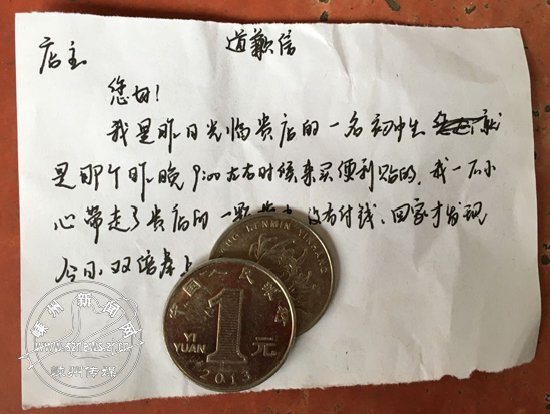 道歉信
店主
您好!
我是昨日光临贵店的一名初中生 就
是那个昨晚9:00左右时候来买便利贴的,我一不小
心带走了贵店的一颗 没有付钱、回家才发现
今日双倍奉上
GUO RENMIN YINHANG
中国人民银行
1
YI
YUAN 元
2013
嵊州新闻网
www.sznews.zj.cn
嵊州传媒